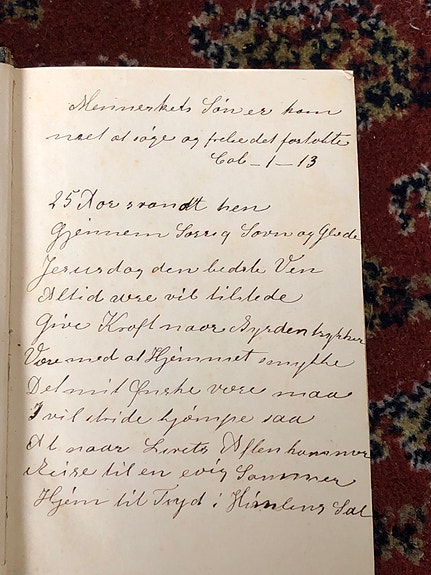 Menneskets Søn er kom
met at søge og frelse det fortabte
Col - 1 - 13
25 Aar svandt hen
Gjennem Sorrig Savn og Glæde
Jesus dog den bedste Ven
Altid være vil tilstede
Give Kraft naar Byrden trykker
Være med at Hjemmet smykke
Det mit Ønske være maa
I vil stride kjæmpe saa
At naar Livets Aften kommer
Reise til en evig Sommer
Hjem til Fryd i Himlens Sal